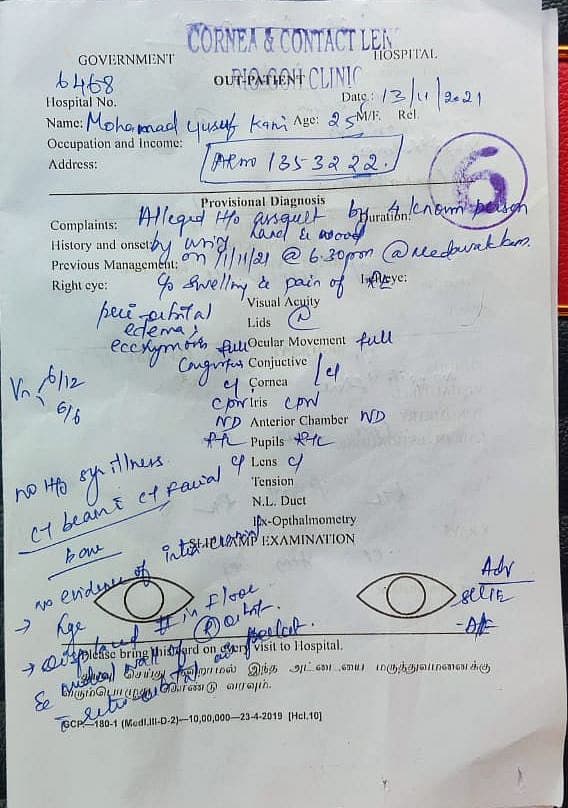 CORNEA & CONTACT LEN
GOVERNMENT HOSPITAL
6468 OUT-PATIENT CLINIC
Hospital No. Date: 13/11/2021
Name: Mohamaad Yusuf Kani Age: 25 M/F. Rel.
Occupation and Income:
Address: ARno 1353222.
6
Provisional Diagnosis
Complaints: Alleged H/o assault by 4 known person Duration:
History and onset: by using hand & wood
Previous Management: on 11/11/21 @ 6.30pm @
Right eye: c/o swelling & pain of RE Left eye:
Visual Acuity
peri-orbital Lids
edema,
ecchymosis full Ocular Movement full
Congestion Conjuctive
Vn 6/12 Cornea
6/6
CPN Iris CPN
ND Anterior Chamber ND
Pupils
no H/o sys illness Lens
CT brain & CT Facial Tension
bone N.L. Duct
Ex-Opthalmometry
SLIT LAMP EXAMINATION
no evidence of intra cranial Adv
→ displaced # in Floor
& medial wall of R orbit.
Please bring this card on every visit to Hospital.
தயவு செய்து தவறாமல் இந்த அட்டையை மருத்துவமனைக்கு
வரும்பொழுது கொண்டு வரவும்.
GCP.—180-1 (Medl.III-D-2)—10,00,000—23-4-2019 [Hcl.10]